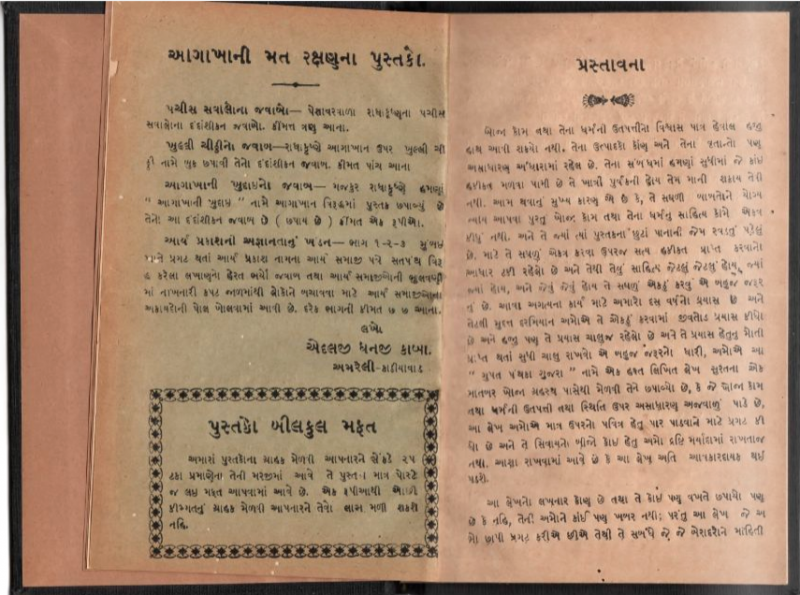 આગાખાની મત રક્ષણના પુસ્તકો.
પચીસ સવાલોના જવાબો— પેશાવરવાળા રાધાકૃષ્ણના પચીસ
સવાલોના દંદાંશીકન જવાબો. કીંમત ત્રણ આના.
ખુલ્લી ચીઠ્ઠીનો જવાબ— રાધાકૃષ્ણે આગાખાન ઉપર ખુલ્લી ચી
ઠ્ઠી નામે બુક છપાવી તેનો દંદાંશીકન જવાબ. કીંમત પાંચ આના
આગાખાની ખુદાઇનો જવાબ— મજકુર રાધાકૃષ્ણે હમણાં
" આગાખાની ખુદાઇ " નામે આગાખાન વિરૂદ્ધમાં પુસ્તક છપાવ્યું છે
તેનો આ દંદાંશીકન જવાબ છે ( છપાય છે ) કીંમત એક રૂપીઓ.
આર્ય પ્રકાશની અજ્ઞાનતાનું ખંડન— ભાગ ૧-૨-૩
પ્રગટ થતાં આર્ય પ્રકાશ નામના આર્ય સમાજી પત્રે સતપંથ વિરૂ
દ્ધ કરેલા લખાણનો હેરત ભર્યો જવાબ તથા આર્ય સમાજીઓની ભુલવણી
માં નાખનારી કપટ જાળમાંથી લોકોને બચાવવા માટે આર્ય સમાજીઓના
પોલ ખોલવામાં આવી છે. દરેક ભાગની કીંમત ૭ ૭ આના.
લખો
એદલજી ધનજી કાબા.
અમરેલી-કાઠીયાવાડ
પુસ્તકો બીલકુલ મફત
અમારાં પુસ્તકોના ગ્રાહક મેળવી આપનારને સેંકડે ૨૫
ટકા પ્રમાણેના તેની મરજીમાં આવે તે પુસ્તકો માત્ર પોસ્ટેજ
જ લઇ મફત આપવામાં આવે છે. એક રૂપીઆથી ઓછી
કીંમતનું ગ્રાહક મેળવી આપનારને તેવો લાભ મળી શકશે
નહિ.
પ્રસ્તાવના
ખોજા કોમ તથા તેના ધર્મની ઉત્પત્તીનો વિશ્વાસ પાત્ર હેવાલ હજુ
હાથ આવી શક્યો નથી. તેના ઉત્પાદકો કોણ અને તેના વૃતાન્તો પણ
અસાધારણ અંધારામાં રહેલ છે. તેના સંબંધમાં હમણાં સુધીમાં જે કાંઇ
હકીકત મળવા પામી છે તે ખાત્રી પુર્વકની હોય તેમ માની શકાય તેવી
નથી. આમ થવાનું મુખ્ય કારણ એ છે કે, તે સઘળી બાબતોને યોગ્ય
ન્યાય આપવા પુરતું ખોજા કોમ તથા તેના ધર્મનું સાહિત્ય કોઇએ એકત્ર
કીધું નથી. અને તે જ્યાં ત્યાં પુસ્તકના છુટાં પાનાંની જેમ રવડતું પડેલું
છે. માટે તે સઘળું એકત્ર કરવા ઉપરજ સત્ય હકીકત પ્રાપ્ત કરવાનો
આધાર ટકી રહેલો છે અને તેથી તેનું સાહિત્ય જેટલું જેટલું હોય, જ્યાં
જ્યાં હોય, અને જેવું જેવું હોય તે સઘળું એકઠું કરવું એ બહુજ જરૂર
નું છે. આવા અગત્યના કાર્ય માટે અમારો દસ વર્ષનો પ્રયાસ છે અને
તેટલી મુદત દરમિયાન અમોએ તે એકઠું કરવામાં જીવતોડ પ્રયાસ કીધો
છે અને હજી પણ તે પ્રયાસ ચાલુજ રહેલો છે અને તે પ્રયાસ હેતુના
પ્રાપ્ત થતાં સુધી ચાલુ રાખવો એ બહુજ જરૂરનો ધારી, અમોએ આ
" ગુપત પંથકા શુજરા " નામે એક હસ્ત લિખિત લેખ સુરતના એક
માતબર ખોજા ગ્રહસ્થ પાસેથી મેળવી તેને છપાવ્યો છે, કે જે ખોજા કોમ
તથા ધર્મની ઉત્પત્તી તથા સ્થિતિ ઉપર અસાધારણ અજવાળું પાડે છે,
આ લેખ અમોએ માત્ર ઉપરનો પવિત્ર હેતુ પાર પાડવાને માટે પ્રગટ કી
ધો છે અને તે સિવાયનો બીજો કોઇ હેતુ અમો દષ્ટિ મર્યાદામાં રાખતાજ
નથી. આશા રાખવામાં આવે છે કે આ લેખ અતિ આવકારદાયક થઇ
પડશે.
આ લેખનો લખનાર કોણ છે તથા તે કોઇ પણ વખતે છપાયો પણ
છે કે નહિ, તેની અમોને કાંઈ પણ ખબર નથી; પરંતુ આ લેખ જે અ
મો છાપી પ્રગટ કરીએ છીએ તેથી તે સબંધે જે જે બેરાદરોને માહિતી